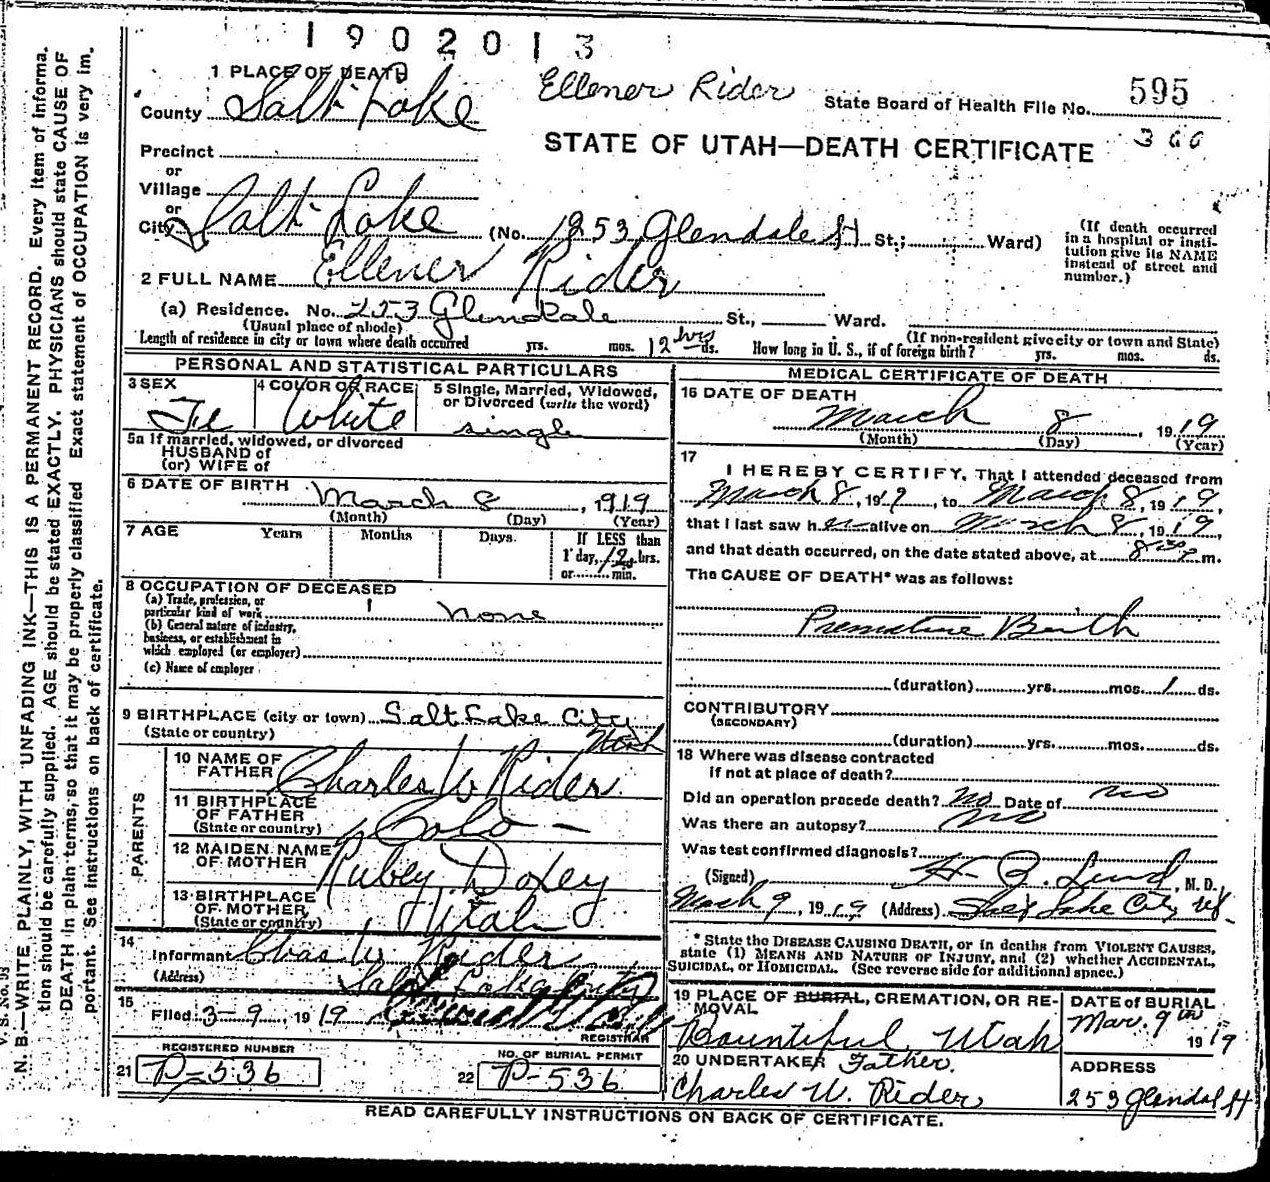 1902013
1 PLACE OF DEATH
Ellener Rider
State Board of Health File No. 595
County Salt Lake
366
STATE OF UTAH—DEATH CERTIFICATE
Precinct
or
Village
or
City Salt Lake (No. 1253 Glendale St St.; Ward)
(If death occurred in a hospital or institution give its NAME instead of street and number.)
2 FULL NAME Ellener Rider
(a) Residence. No. 253 Glendale St., Ward.
(Usual place of abode) (If non-resident give city or town and State)
Length of residence in city or town where death occurred yrs. mos. 12 hrs ds. How long in U. S., if of foreign birth? yrs. mos. ds.
PERSONAL AND STATISTICAL PARTICULARS
3 SEX Fe
4 COLOR OR RACE White
5 Single, Married, Widowed, or Divorced (write the word) single
5a If married, widowed, or divorced
HUSBAND of
(or) WIFE of
6 DATE OF BIRTH March 8, 1919
(Month) (Day) (Year)
7 AGE Years Months Days. If LESS than
1 day, 12 hrs.
or min.
8 OCCUPATION OF DECEASED
(a) Trade, profession, or
particular kind of work none
(b) General nature of industry,
business, or establishment in
which employed (or employer)
(c) Name of employer
9 BIRTHPLACE (city or town) Salt Lake City
(State or country) Utah
PARENTS
10 NAME OF
FATHER Charles W Rider
11 BIRTHPLACE
OF FATHER
(State or country) Colo —
12 MAIDEN NAME
OF MOTHER Rubey Doxey
13 BIRTHPLACE
OF MOTHER
(State or country) Utah
14
Informant Chas W Rider
(Address) Salt Lake City
15
Filed 3-9, 1919
REGISTRAR
REGISTERED NUMBER
21 P-536
NO. OF BURIAL PERMIT
22 P-536
MEDICAL CERTIFICATE OF DEATH
16 DATE OF DEATH
March 8, 1919
(Month) (Day) (Year)
17
I HEREBY CERTIFY, That I attended deceased from
March 8, 1919, to March 8, 1919,
that I last saw her alive on March 8, 1919,
and that death occurred, on the date stated above, at 8 30 P m.
The CAUSE OF DEATH* was as follows:
Premature Birth
(duration) yrs. mos. 1 ds.
CONTRIBUTORY
(SECONDARY)
(duration) yrs. mos. ds.
18 Where was disease contracted
if not at place of death?
Did an operation precede death? no Date of no
Was there an autopsy? no
Was test confirmed diagnosis?
(Signed) Lund, M. D.
March 9, 1919 (Address) Salt Lake City Ut.
*State the DISEASE CAUSING DEATH, or in deaths from VIOLENT CAUSES,
state (1) MEANS AND NATURE OF INJURY, and (2) whether ACCIDENTAL,
SUICIDAL, or HOMICIDAL. (See reverse side for additional space.)
19 PLACE OF BURIAL, CREMATION, OR RE-
MOVAL
Bountiful Utah
DATE of BURIAL
Mar. 9th 1919
20 UNDERTAKER Father.
Charles W. Rider
ADDRESS
253 Glendal St
READ CAREFULLY INSTRUCTIONS ON BACK OF CERTIFICATE.
V. S. No.
N. B.—WRITE PLAINLY, WITH UNFADING INK—THIS IS A PERMANENT RECORD. Every item of informa-
tion should be carefully supplied. AGE should be stated EXACTLY. PHYSICIANS should state CAUSE OF
DEATH in plain terms, so that it may be properly classified Exact statement of OCCUPATION is very im-
portant. See instructions on back of certificate.